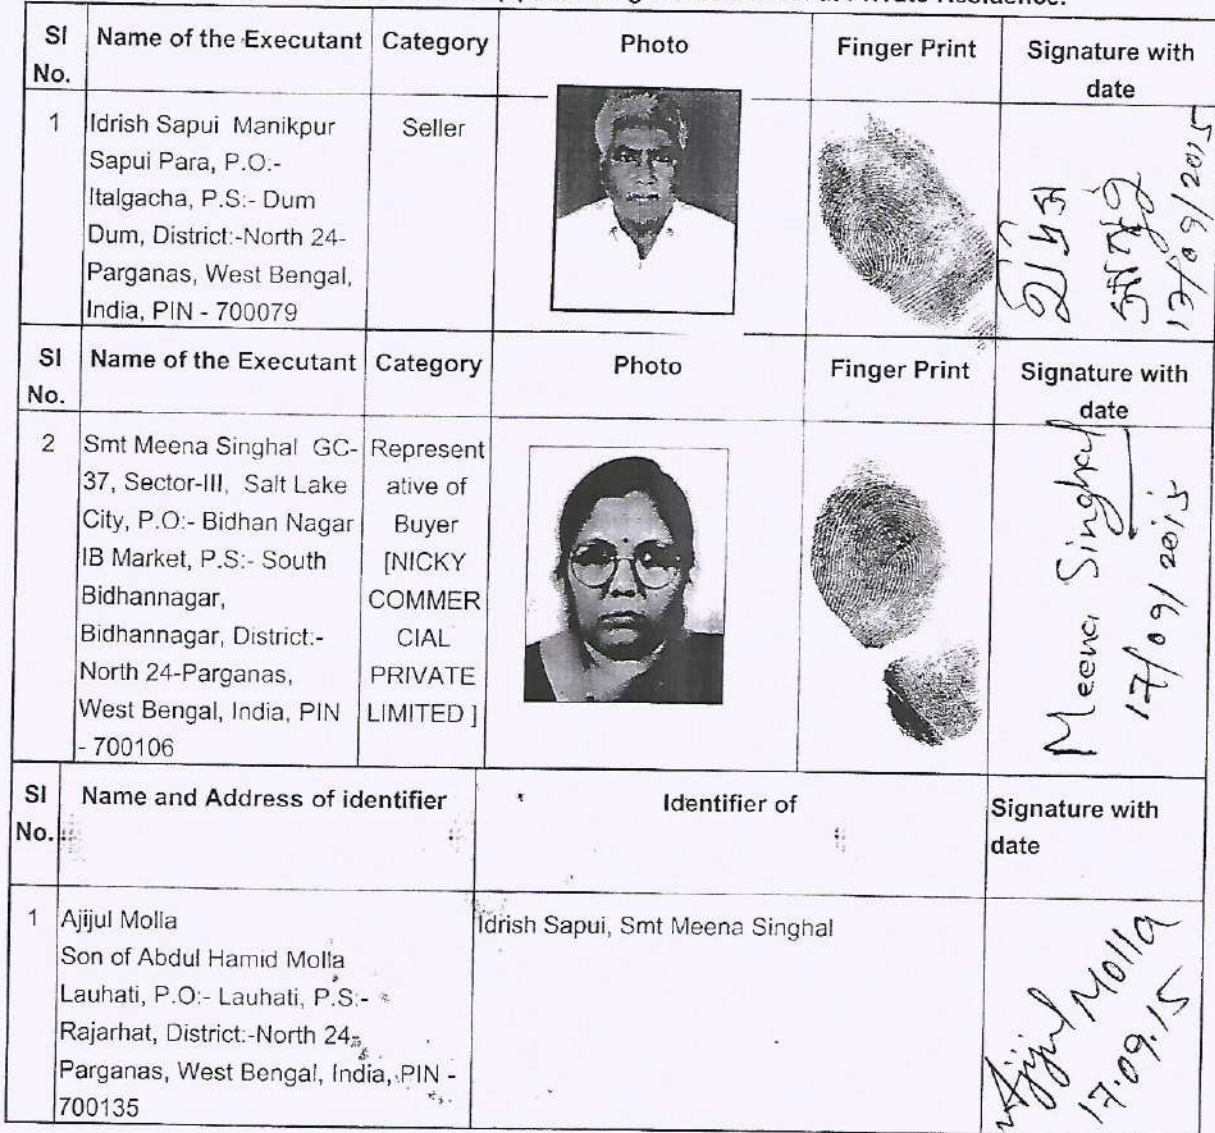 at Private Residence.
Sl No.
Name of the Executant
Category
Photo
Finger Print
Signature with date
1
Idrish Sapui Manikpur
Sapui Para, P.O:-
Italgacha, P.S:- Dum
Dum, District:-North 24-
Parganas, West Bengal,
India, PIN - 700079
Seller
ইদ্রিশ
সাপুই
17/09/2015
Sl No.
Name of the Executant
Category
Photo
Finger Print
Signature with date
2
Smt Meena Singhal GC-
37, Sector-III, Salt Lake
City, P.O:- Bidhan Nagar
IB Market, P.S:- South
Bidhannagar,
Bidhannagar, District:-
North 24-Parganas,
West Bengal, India, PIN
- 700106
Represent
ative of
Buyer
[NICKY
COMMER
CIAL
PRIVATE
LIMITED ]
Meena Singhal
17/09/2015
Sl No.
Name and Address of identifier
Identifier of
Signature with
date
1
Ajijul Molla
Son of Abdul Hamid Molla
Lauhati, P.O:- Lauhati, P.S:-
Rajarhat, District:-North 24-
Parganas, West Bengal, India, PIN -
700135
Idrish Sapui, Smt Meena Singhal
Ajijul Molla
17.09.15